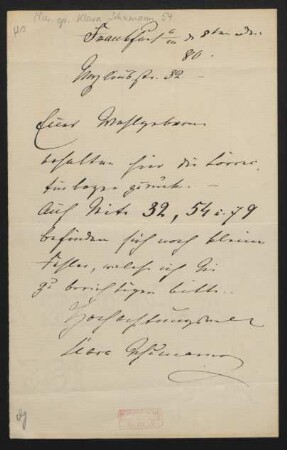 Mus. ep. Klara Schumann 54
Frankfurt a/m d 8ten
80.
Myliusstr. 32 –
Euer Wohlgeboren
erhalten hier die Correc-
turbogen zurück. –
Auf Seite 32, 54 & 79
befinden sich noch kleine
Fehler, welche ich Sie
zu berichtigen bitte.
Hochachtungsvoll
Clara Schumann